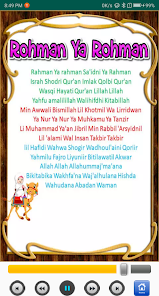 8:49 PM
Rohman Ya Rohman
Rohman Ya rahman Sa'idni Ya Rahman
Israh Shodri Qur'an Imlak Qolbi Qur'an
Wasqi Hayati Qur'an Lillah Lillah
Yahfu amalillilah Walihifdhi Kitabillah
Min Awwali Bismillah Lil Khotmil Wa Lirridwan
Ya Nur Ya Nur Ya Muhkama Ya Tanzir
Li Muhammad Ya'an Jibril Min Rabbil 'Arsyidnil
Lil 'alami Wal Insan Takbir Takbir
lil Hafidl Wahwa Shogir Wadhoul'aini Qorir
Yahmilu Fajro Liyunir Bitilawatil Akwar
Allah Allah Allahummaj'me'ana
Bikitabika Wakhfa'na Waj'alhulana Hishda
Wahudana Abadan Waman
Home